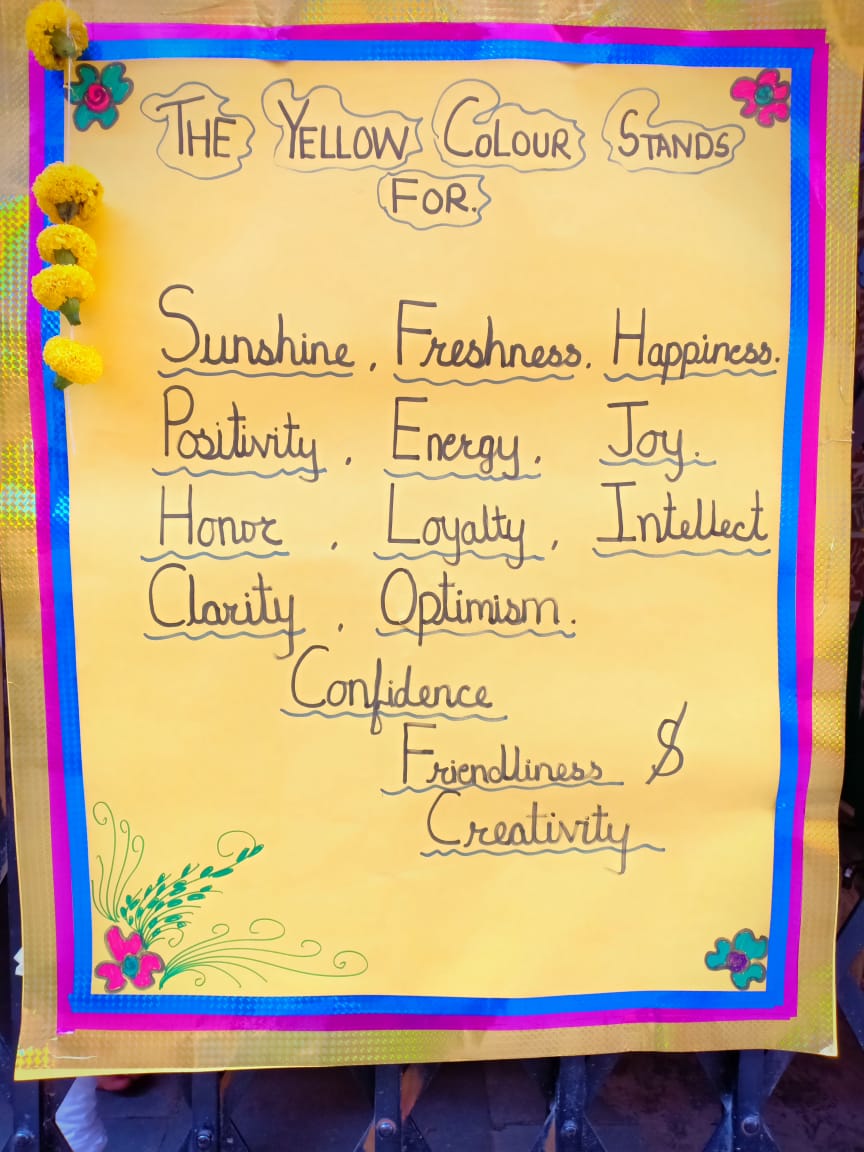 THE YELLOW COLOUR STANDS
FOR.
Sunshine, Freshness, Happiness.
Positivity, Energy, Joy.
Honor, Loyalty, Intellect
Clarity, Optimism.
Confidence
Friendliness &
Creativity